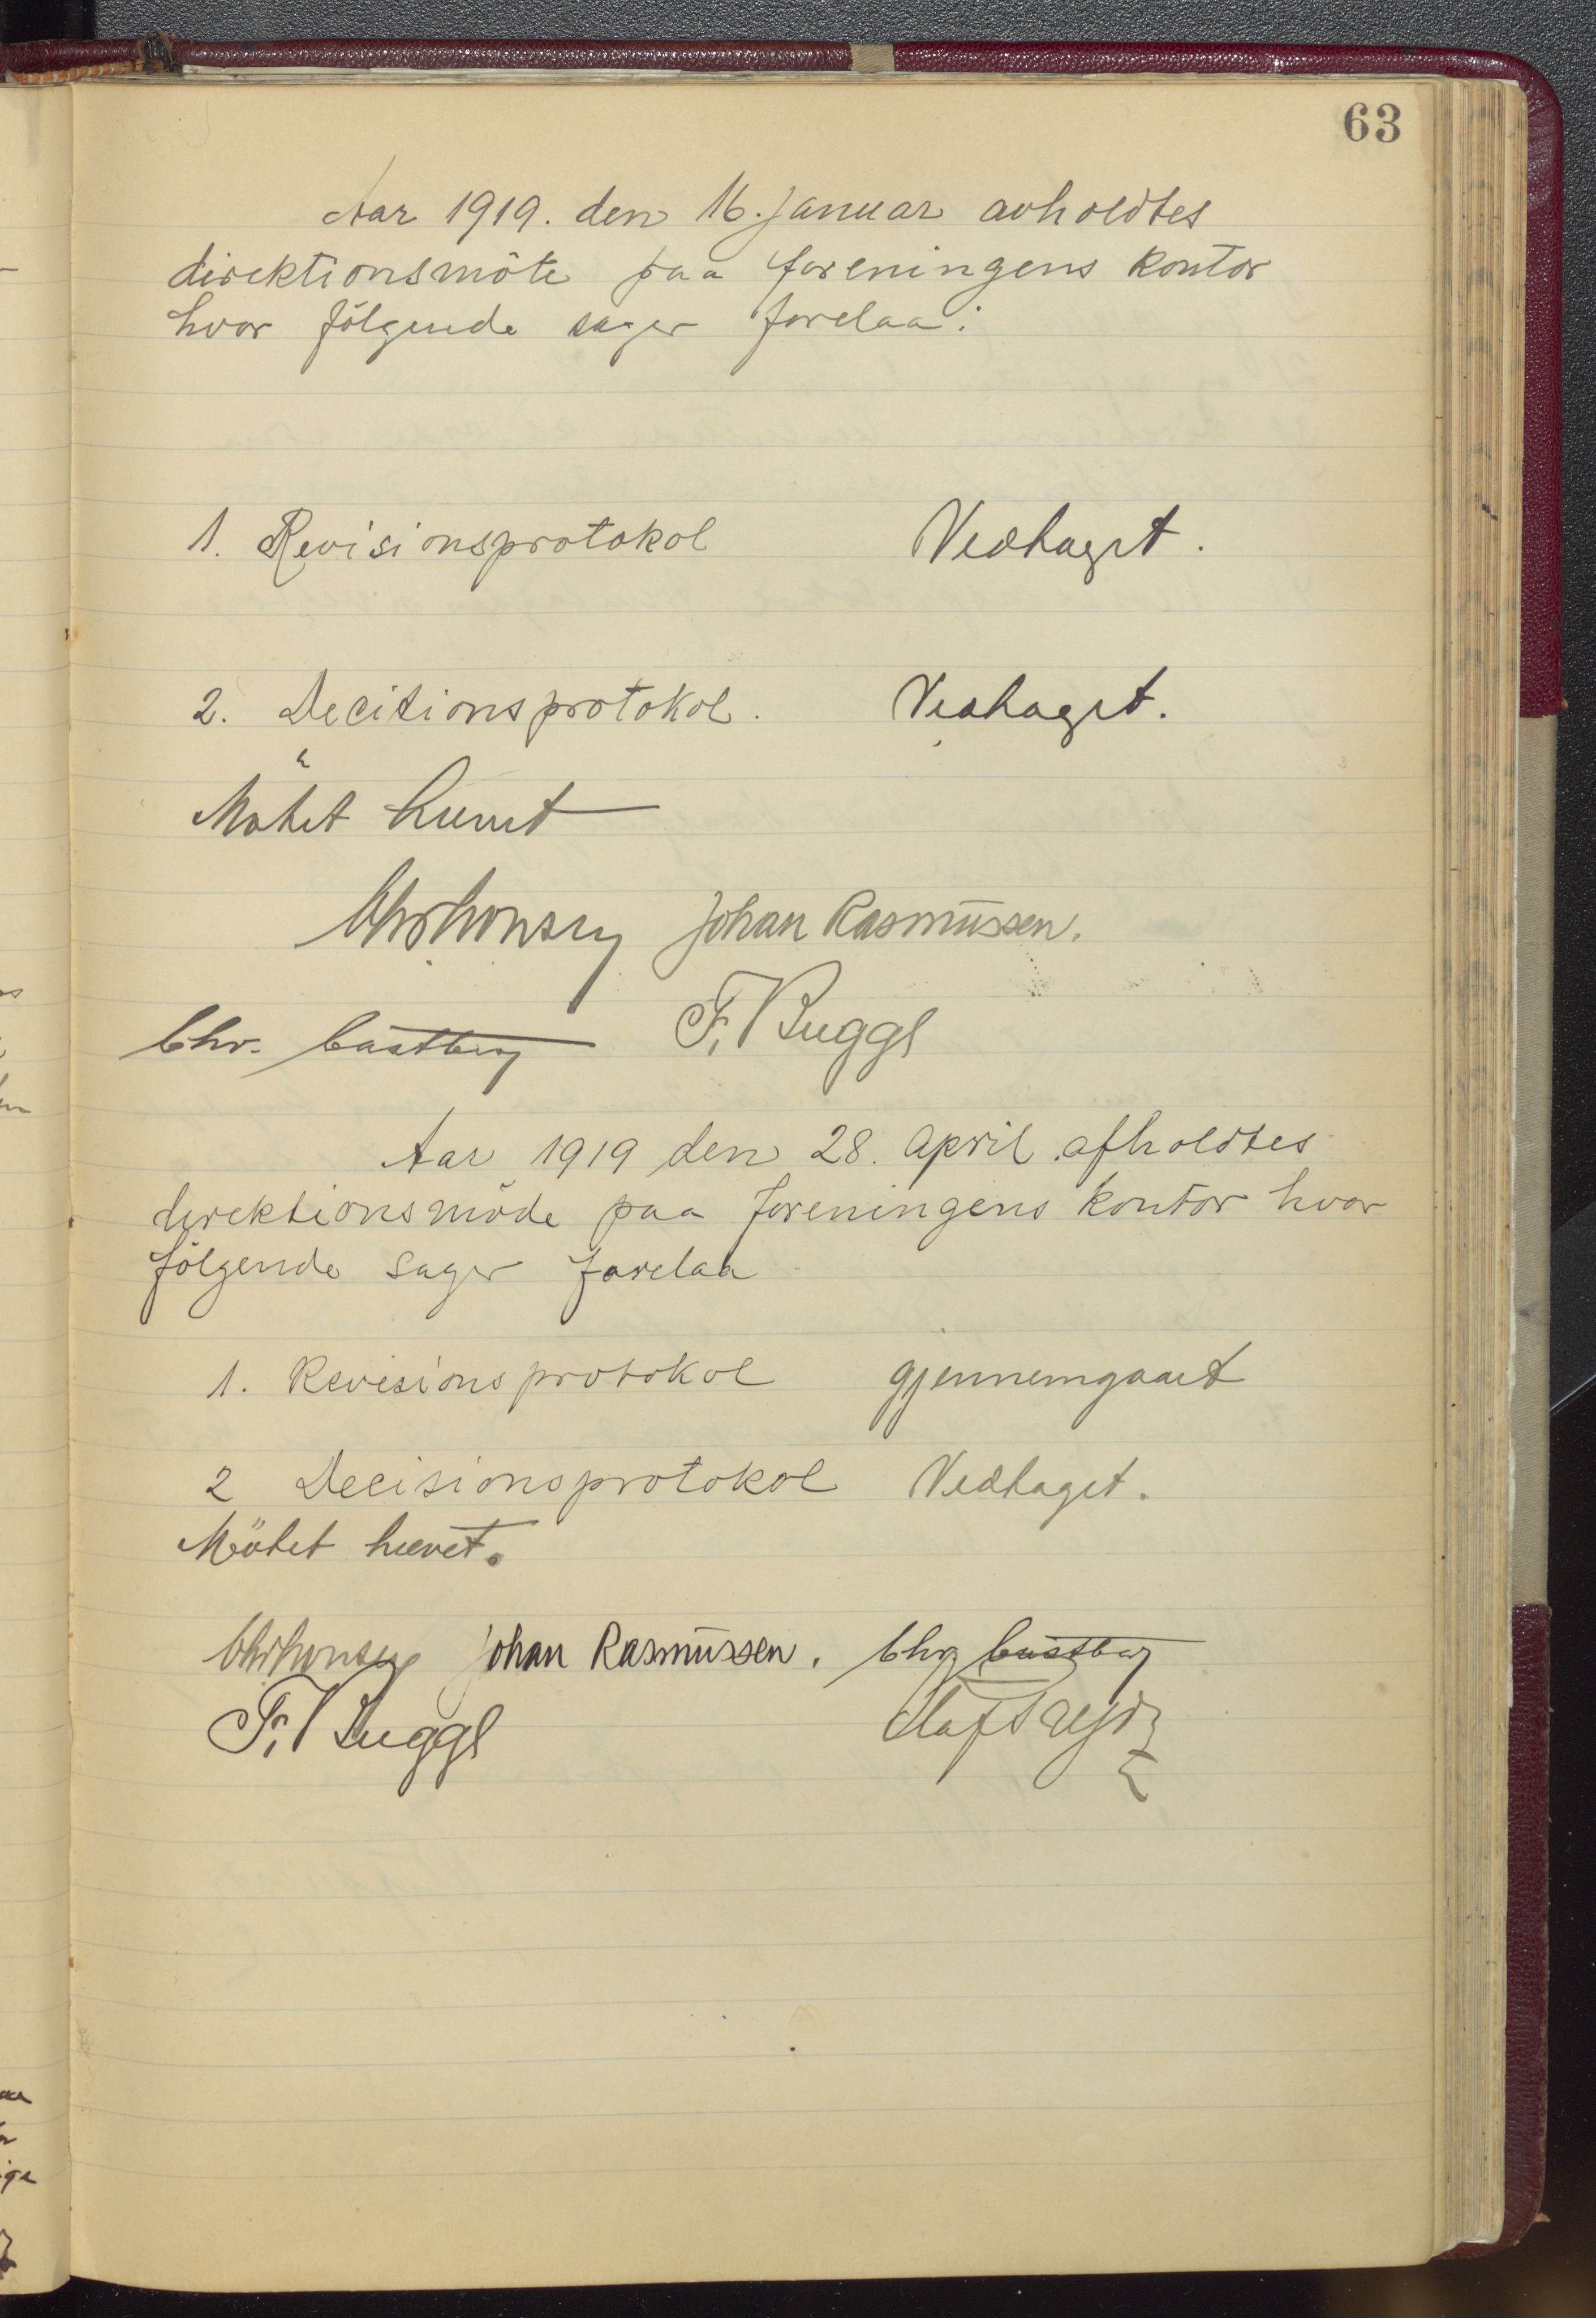 63
Aar 1919. den 16. januar avholdtes
direktionsmöte paa foreningens kontor
hvor fölgende sager forelaa:
1. Revisionsprotokol Vedtaget.
2. Decitionsprotokol. Vedtaget.
Mötet hævet
Johan Rasmussen.
Chr. Castberg F. Bugge
Aar 1919 den 28. April afholdtes
direktionsmöde paa foreningens kontor hvor
fölgende sager forelaa
1. Revisionsprotokol gjennemgaaet
2 Decisionsprotokol Vedtaget.
Mötet hævet.
Johan Rasmussen. Chr Castberg
F. Bugge Olaf